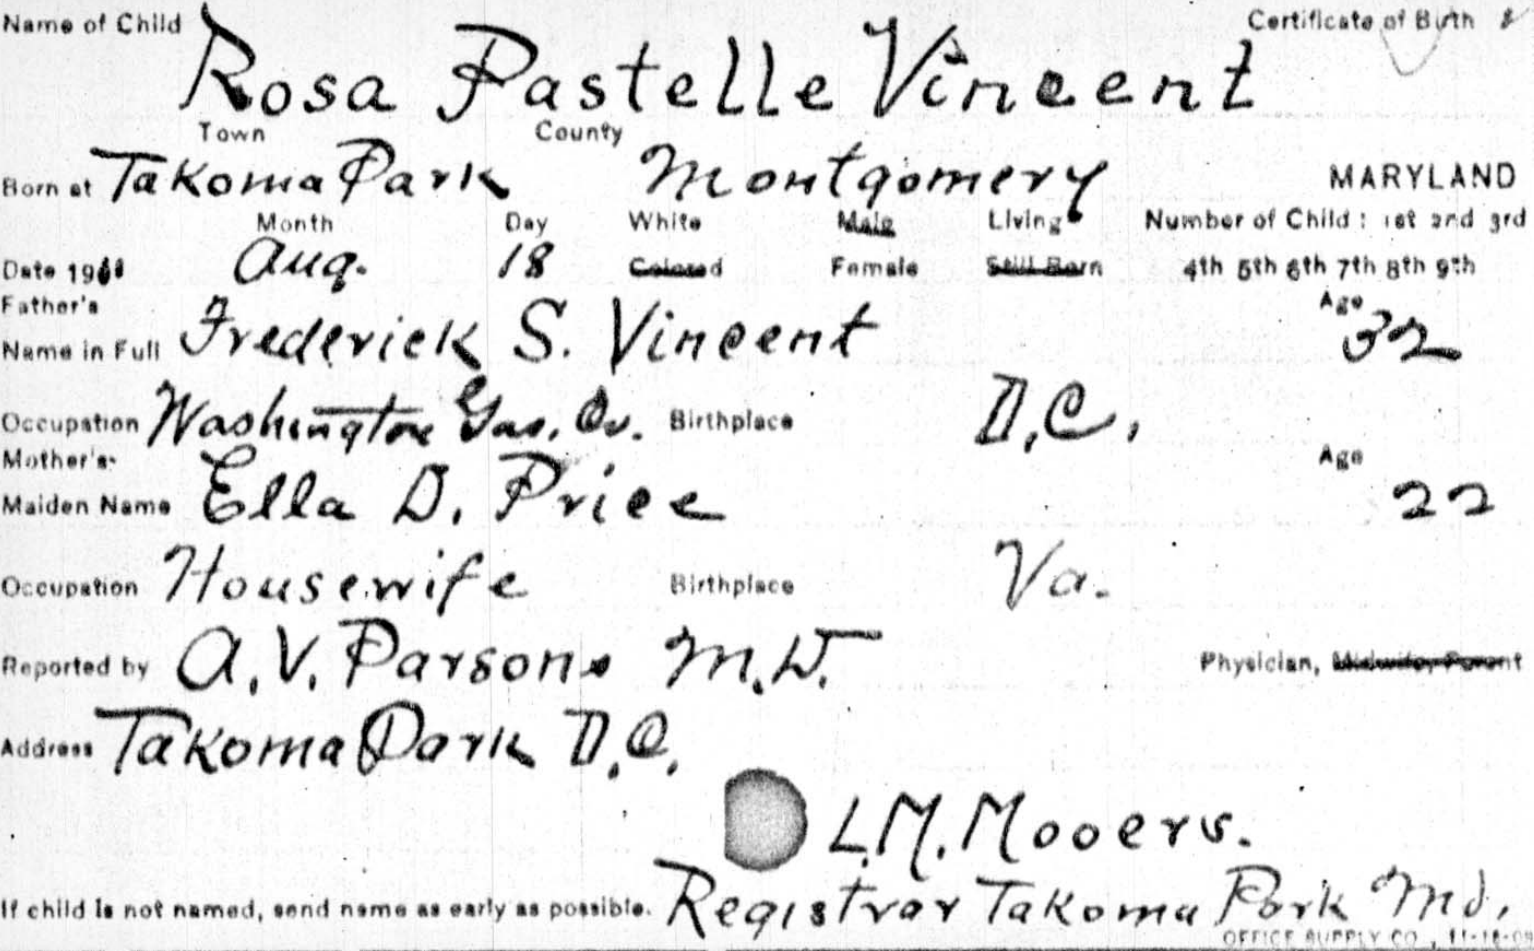 Name of Child Certificate of Birth
Rosa Pastelle Vincent
Town County
Born at Takoma Park Montgomery MARYLAND
Month Day White Male Living Number of Child: 1st 2nd 3rd
Date 19 Aug. 18 Colored Female Still Born 4th 5th 6th 7th 8th 9th
Father's Age
Name in Full Frederick S. Vincent 32
Occupation Washington Gas. Co. Birthplace D.C.
Mother's Age
Maiden Name Ella D. Price 22
Occupation Housewife Birthplace Va.
Reported by A.V. Parsons M.D. Physician, Midwife, Parent
Address Takoma Park D.C.
L.M. Mooers.
If child is not named, send name as early as possible. Registrar Takoma Park Md.
OFFICE SUPPLY CO., 11-18-09